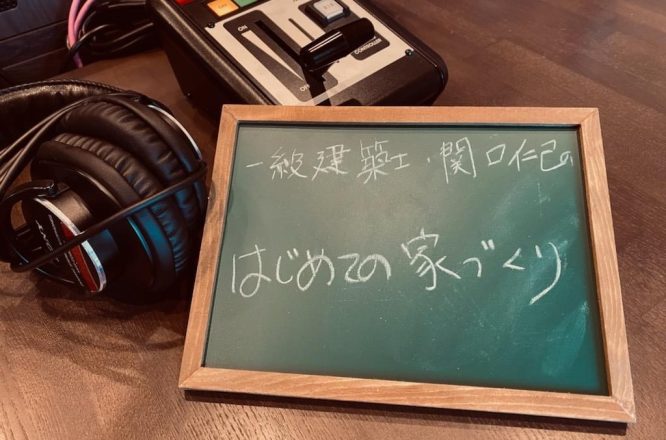 ON
CONTROLLER
一級建築士・関口仁己の
はじめての家づくり